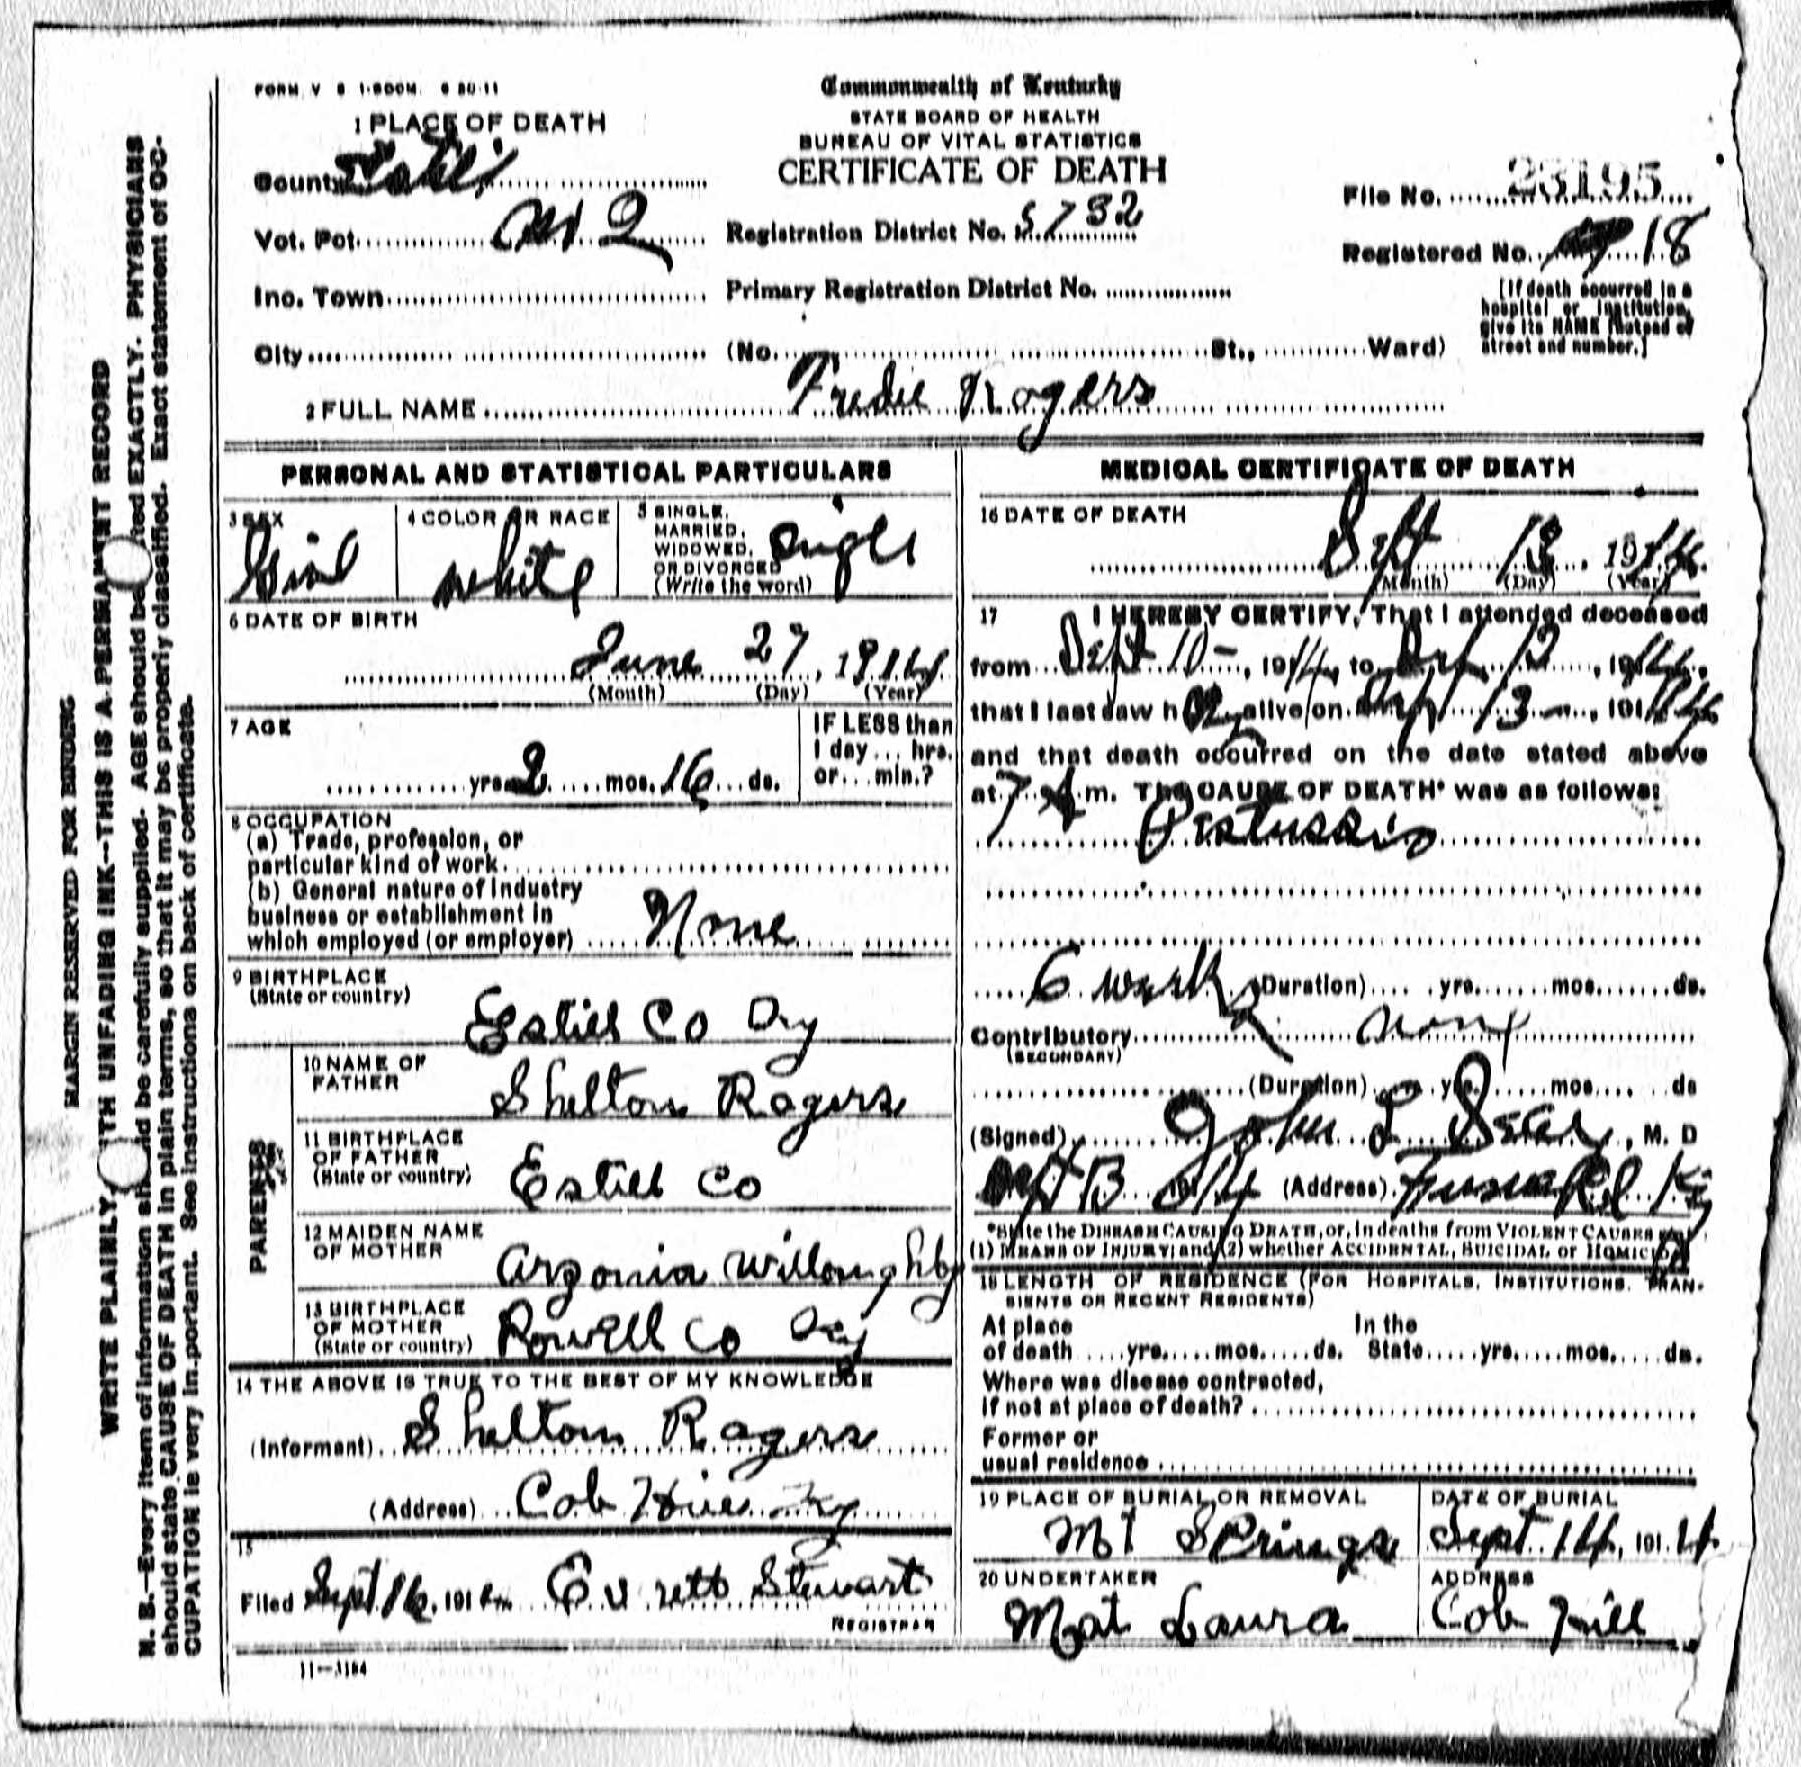 FORM V S 1-500M 6 30-11
Commonwealth of Kentucky
STATE BOARD OF HEALTH
BUREAU OF VITAL STATISTICS
CERTIFICATE OF DEATH
1 PLACE OF DEATH
County
Vot. Pct. 2
Registration District No. 5732
File No. 23195
Registered No. 18
Inc. Town
Primary Registration District No.
[If death occurred in a
hospital or institution,
give its NAME instead of
street and number.]
City (No. St., Ward)
2 FULL NAME Fredie Rogers
PERSONAL AND STATISTICAL PARTICULARS
3 SEX
Girl
4 COLOR OR RACE
White
5 SINGLE,
MARRIED,
WIDOWED,
OR DIVORCED
(Write the word)
Single
6 DATE OF BIRTH
June 27, 1914
(Month) (Day) (Year)
7 AGE
yrs. 2 mos. 16 ds.
IF LESS than
1 day... hrs.
or... min.?
8 OCCUPATION
(a) Trade, profession, or
particular kind of work
(b) General nature of industry
business or establishment in
which employed (or employer) None
9 BIRTHPLACE
(State or country)
Estill Co Ky
PARENTS
10 NAME OF
FATHER
Shelton Rogers
11 BIRTHPLACE
OF FATHER
(State or country)
Estill Co
12 MAIDEN NAME
OF MOTHER
Arzonia Willoughby
13 BIRTHPLACE
OF MOTHER
(State or country)
Powell Co Ky
14 THE ABOVE IS TRUE TO THE BEST OF MY KNOWLEDGE
(Informant) Shelton Rogers
(Address) Cob Hill Ky
15
Filed Sept 16, 1914 Everett Stewart
REGISTRAR
11-3184
MEDICAL CERTIFICATE OF DEATH
16 DATE OF DEATH
Sept 13, 1914
(Month) (Day) (Year)
17 I HEREBY CERTIFY, That I attended deceased
from Sept 10-, 1914, to Sept 13, 1914,
that I last saw h alive on Sept 13, 1914
and that death occurred on the date stated above
at 7 A m. The CAUSE OF DEATH* was as follows:
6 weeks (Duration) yrs. mos. ds.
Contributory none
(SECONDARY)
(Duration) yrs. mos. ds
(Signed) John L , M. D
(Address) Ky
*State the DISEASE CAUSING DEATH, or, in deaths from VIOLENT CAUSES
(1) MEANS OF INJURY; and (2) whether ACCIDENTAL, SUICIDAL or HOMICIDAL
18 LENGTH OF RESIDENCE (FOR HOSPITALS, INSTITUTIONS, TRAN-
SIENTS OR RECENT RESIDENTS)
At place In the
of death yrs. mos. ds. State yrs. mos. ds.
Where was disease contracted,
If not at place of death?
Former or
usual residence
19 PLACE OF BURIAL OR REMOVAL
Mt Springs
DATE OF BURIAL
Sept. 14, 1914
20 UNDERTAKER
Mat
ADDRESS
Cob Hill
MARGIN RESERVED FOR BINDING
WRITE PLAINLY, WITH UNFADING INK--THIS IS A PERMANENT RECORD
N. B.—Every item of information should be carefully supplied. AGE should be stated EXACTLY. PHYSICIANS
should state CAUSE OF DEATH in plain terms, so that it may be properly classified. Exact statement of OC-
CUPATION is very important. See instructions on back of certificate.